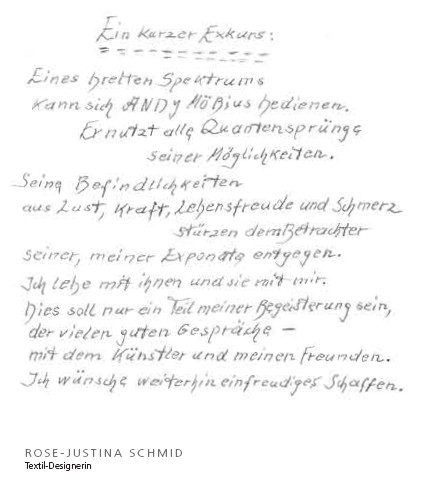 Ein kurzer Exkurs:
Eines breiten Spektrums
kann sich ANDY MÖBius bedienen.
Er nutzt alle Quantensprünge
seiner Möglichkeiten.
Seine Befindlichkeiten
aus Lust, Kraft, Lebensfreude und Schmerz
stürzen dem Betrachter
seiner, meiner Exponate entgegen.
Ich lebe mit ihnen und sie mit mir.
Dies soll nur ein Teil meiner Begeisterung sein,
der vielen guten Gespräche –
mit dem Künstler und meinen Freunden.
Ich wünsche weiterhin ein freudiges Schaffen.
ROSE-JUSTINA SCHMID
Textil-Designerin